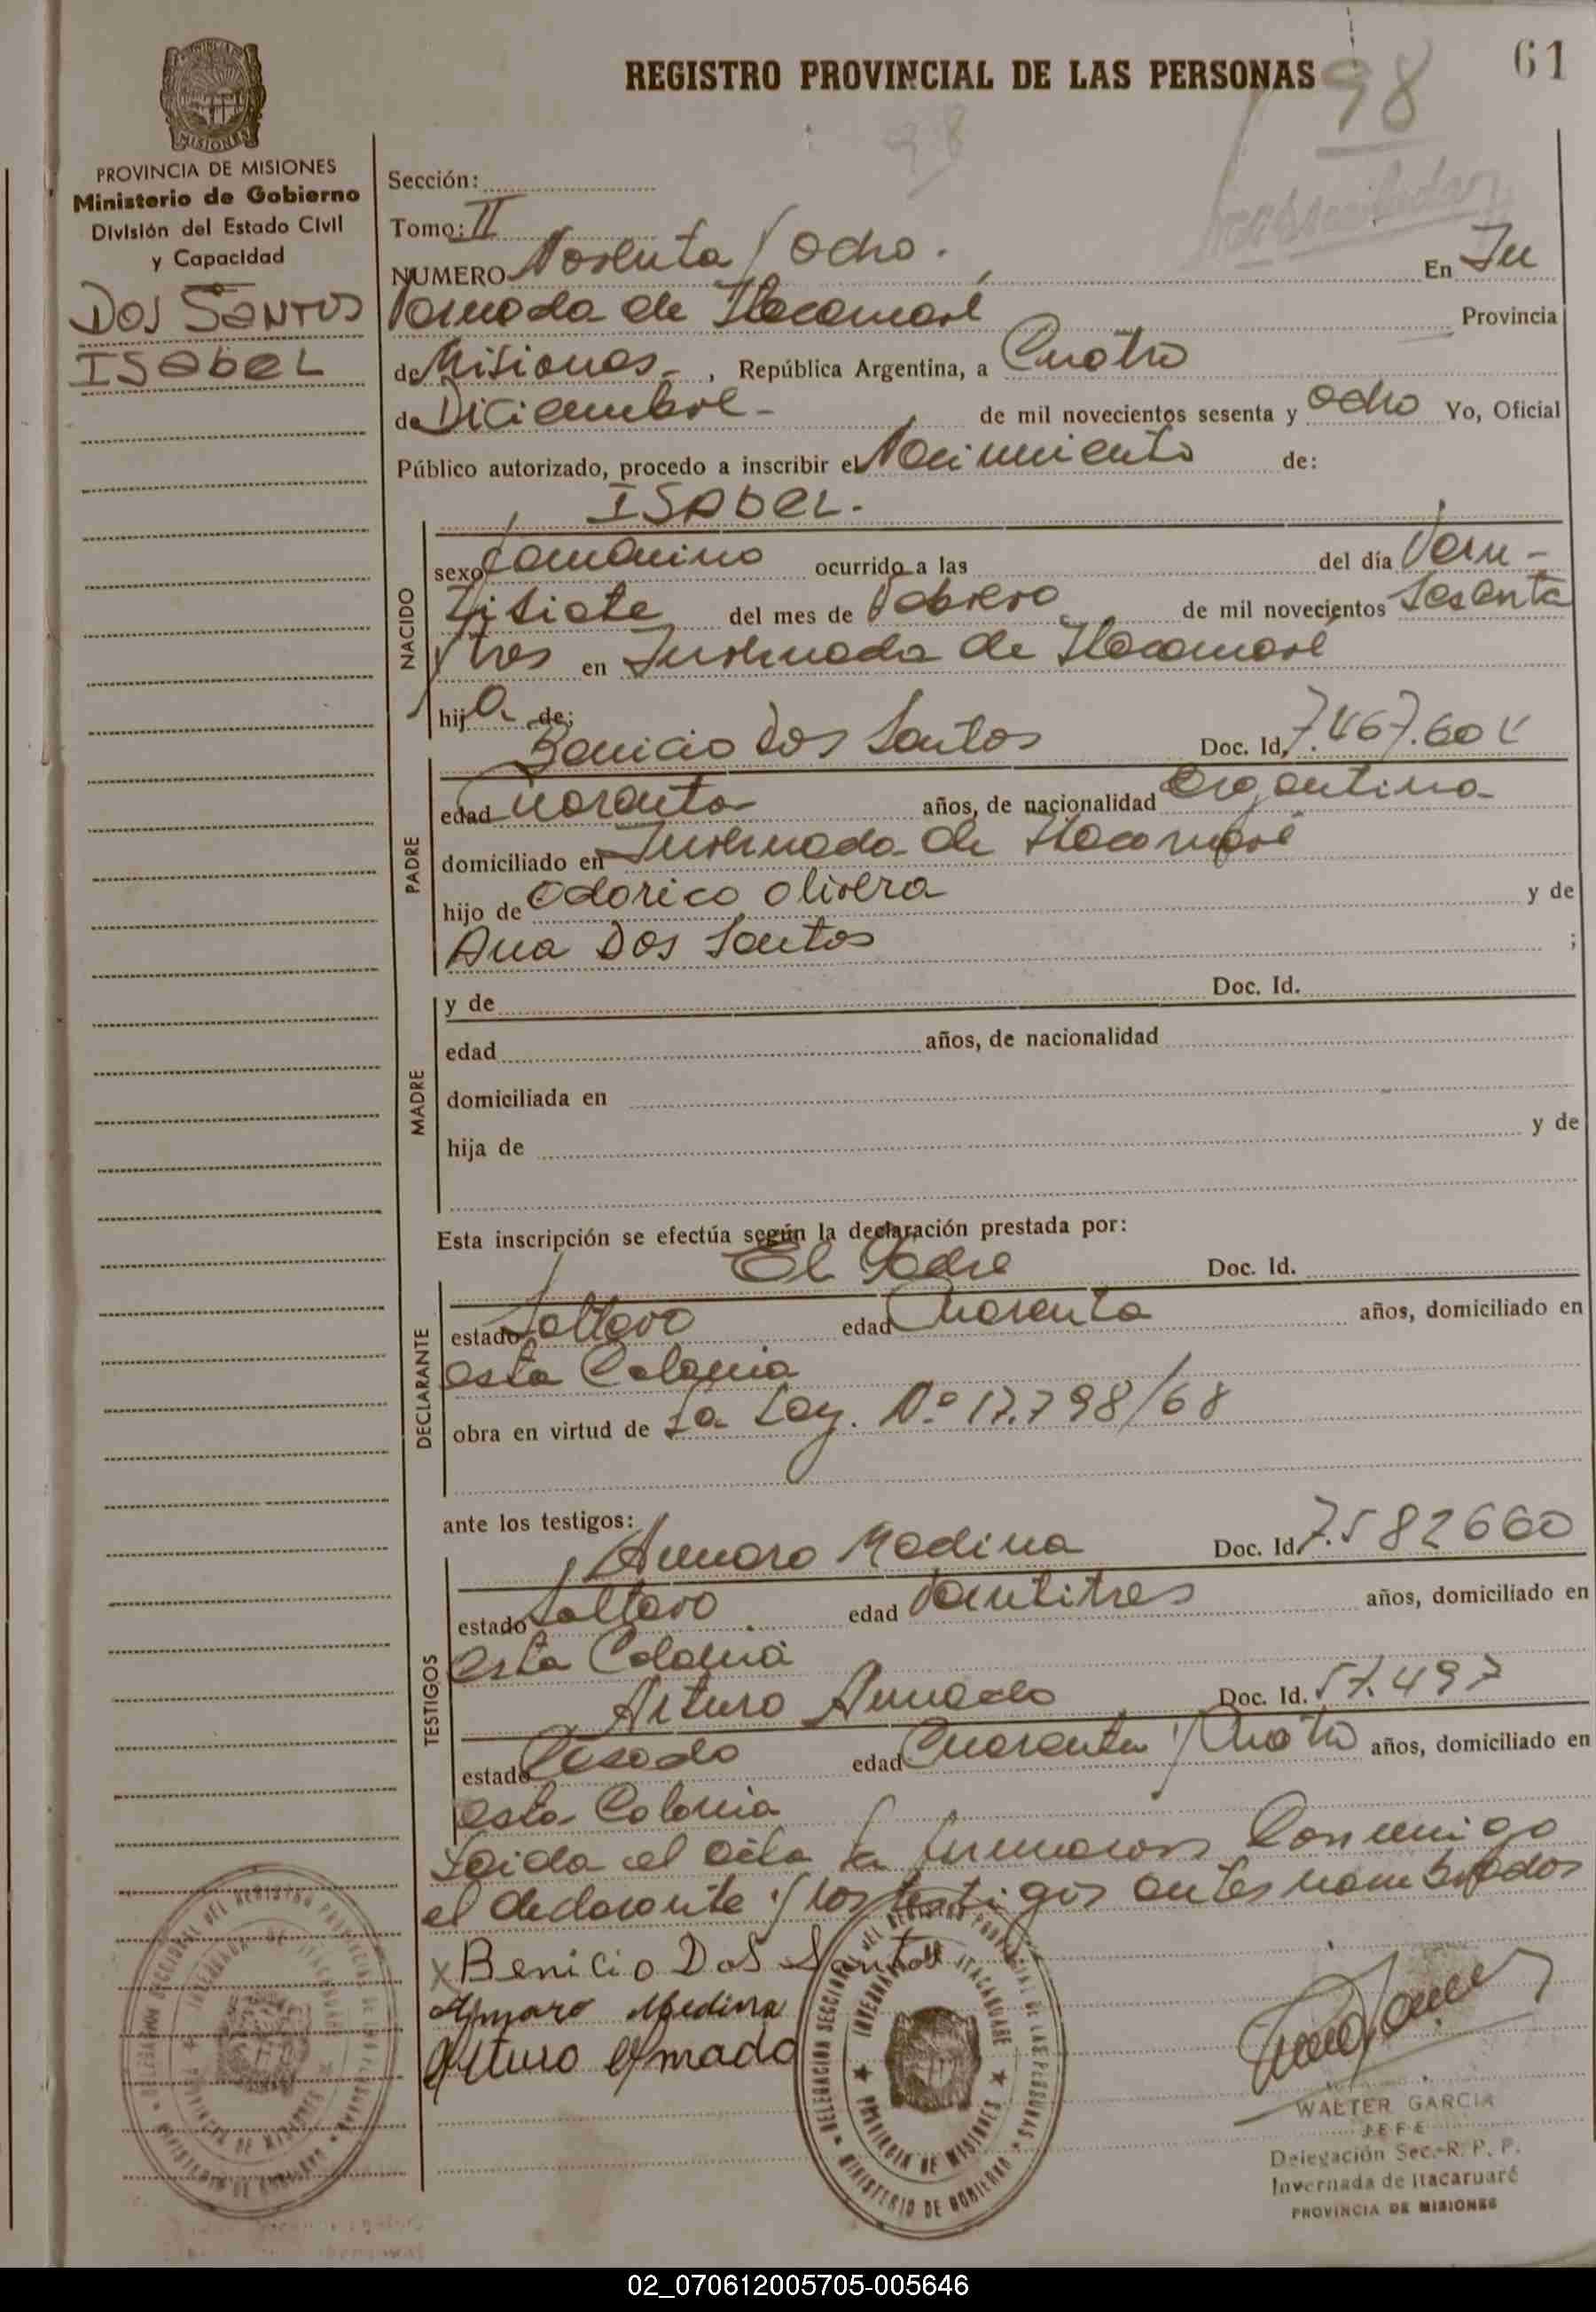 61
REGISTRO PROVINCIAL DE LAS PERSONAS
98
98
MISIONES
PROVINCIA DE MISIONES
Ministerio de Gobierno
División del Estado Civil
y Capacidad
DOS SANTOS
ISABEL
Sección:
Tomo: II
NUMERO Noventa y ocho. En In
vernada de Itacaruaré Provincia
de Misiones, República Argentina, a Cuatro
de Diciembre de mil novecientos sesenta y ocho Yo, Oficial
Público autorizado, procedo a inscribir el Nacimiento de:
NACIDO
ISABEL.
sexo femenino ocurrido a las del día Vein-
tisiete del mes de Febrero de mil novecientos Sesenta
y tres en Invernada de Itacaruaré
hija de:
PADRE
Benicio Dos Santos Doc. Id. 7.467.60
edad Cuarenta años, de nacionalidad Argentina
domiciliado en Invernada de Itacaruaré
hijo de Odorico Olivera y de
Ana Dos Santos ;
MADRE
y de Doc. Id.
edad años, de nacionalidad
domiciliada en
hija de y de
Esta inscripción se efectúa según la declaración prestada por:
DECLARANTE
El Padre Doc. Id.
estado Soltero edad Cuarenta años, domiciliado en
esta Colonia
obra en virtud de La Ley. Nº 17.798/68
ante los testigos:
TESTIGOS
Amaro Medina Doc. Id. 7.582660
estado Soltero edad Veintitres años, domiciliado en
esta Colonia
Arturo Amado Doc. Id. 57.497
estado Casado edad Cuarenta y Cuatro años, domiciliado en
esta Colonia
Leida el acta la firmaron Conmigo
el declarante y los testigos antes nombrados
x Benicio Dos Santos
Amaro Medina
Arturo Amado
DELEGACION SECCIONAL DEL REGISTRO PROVINCIAL DE LAS PERSONAS
INVERNADA DE ITACARUARE
PROVINCIA DE MISIONES
MINISTERIO DE GOBIERNO
DELEGACION SECCIONAL DEL REGISTRO PROVINCIAL DE LAS PERSONAS
INVERNADA DE ITACARUARE
PROVINCIA DE MISIONES
MINISTERIO DE GOBIERNO
WALTER GARCIA
JEFE
Delegación Sec.-R. P. P.
Invernada de Itacaruaré
PROVINCIA DE MISIONES
02_070612005705-005646